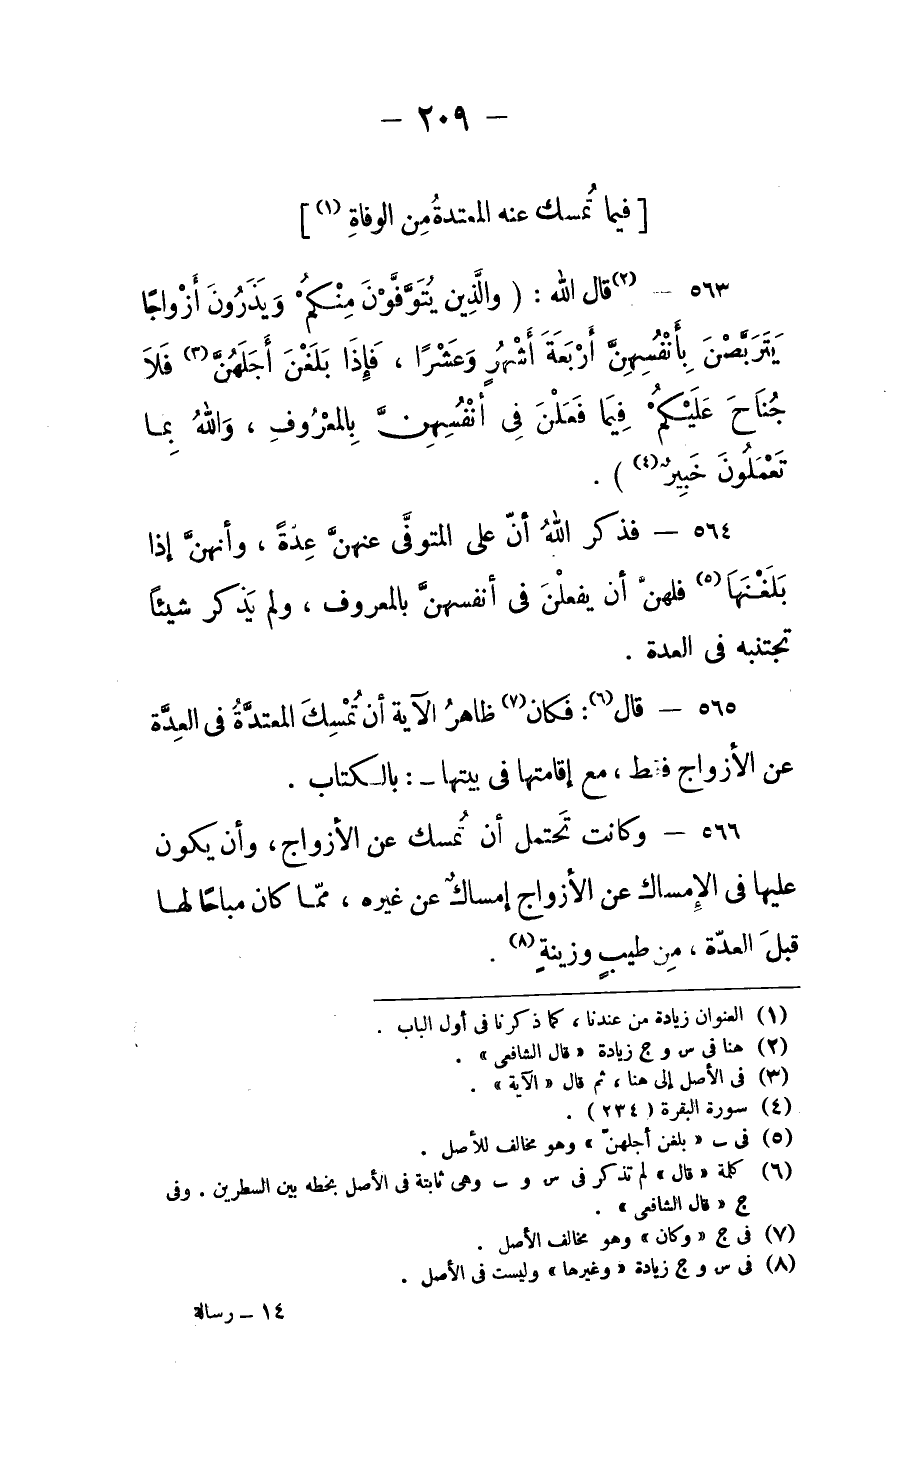 — ٢٠٩ —
[ فيما تُمسك عنه المعتدةُ مِن الوفاةِ (١) ]
٥٦٣ — (٢) قال الله : ( والَّذِين يُتَوَفَّوْنَ مِنْكمُ ْ وَيَذَرُونَ أَزْواجًا
يَتَرَبَّصْنَ بِأَنْفُسِهِنَّ أَرْبَعَةَ أَشْهُرٍ وَعَشْرًا ، فَإِذَا بَلَغْنَ أَجَلَهُنَّ (٣) فَلاَ
جُنَاحَ عَلَيْكمُ ْ فِيمَا فَعَلْنَ فِى أَنْفُسِهِنَّ بِالمَعْرُوفِ ، وَاللهُ بِمَا
تَعْمَلُونَ خَبِيرٌ (٤) ) .
٥٦٤ — فذكر اللهُ أنّ على المتوفَّى عنهنَّ عِدّةً ، وأنهنَّ إذا
بَلَغْنَهَا (٥) فلهنّ أن يفعلْنَ فى أنفسهنَّ بالمعروف ، ولم يَذكر شيئًا
تجتنبه فى العدة .
٥٦٥ — قال (٦) : فكان (٧) ظاهرُ الآية أن تُمْسِكَ المعتدَّةُ فى العِدَّة
عن الأزواج فقط ، مع إقامتها فى بيتها ــ : بالكتاب .
٥٦٦ — وكانت تَحتمل أن تُمسك عن الأزواج، وأن يكون
عليها فى الإِمساك عن الأزواج إمساكٌ عن غيره ، ممّا كان مباحًا لها
قبلَ العدّة ، مِن طيبٍ وزينةٍ (٨) .
(١) العنوان زيادة من عندنا ، كما ذكرنا فى أول الباب .
(٢) هنا فى س و ج زيادة « قال الشافعى » .
(٣) فى الأصل إلى هنا ، ثم قال « الآية » .
(٤) سورة البقرة ( ٢٣٤ ) .
(٥) فى ب « بلغن أجلهنّ » وهو مخالف للأصل .
(٦) كلمة « قال » لم تذكر فى س و ب وهى ثابتة فى الأصل بخطه بين السطرين . وفى
ج « قال الشافعى » .
(٧) فى ج « وكان » وهو مخالف الأصل .
(٨) فى س و ج زيادة « وغيرها » وليست فى الأصل .
١٤ ــ رسالة